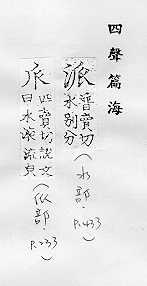 四聲篇海
派 普賣切水別分(水部.P.433)
𠂢 匹賣切說文曰水衺流皃(𠂢部.P.233)